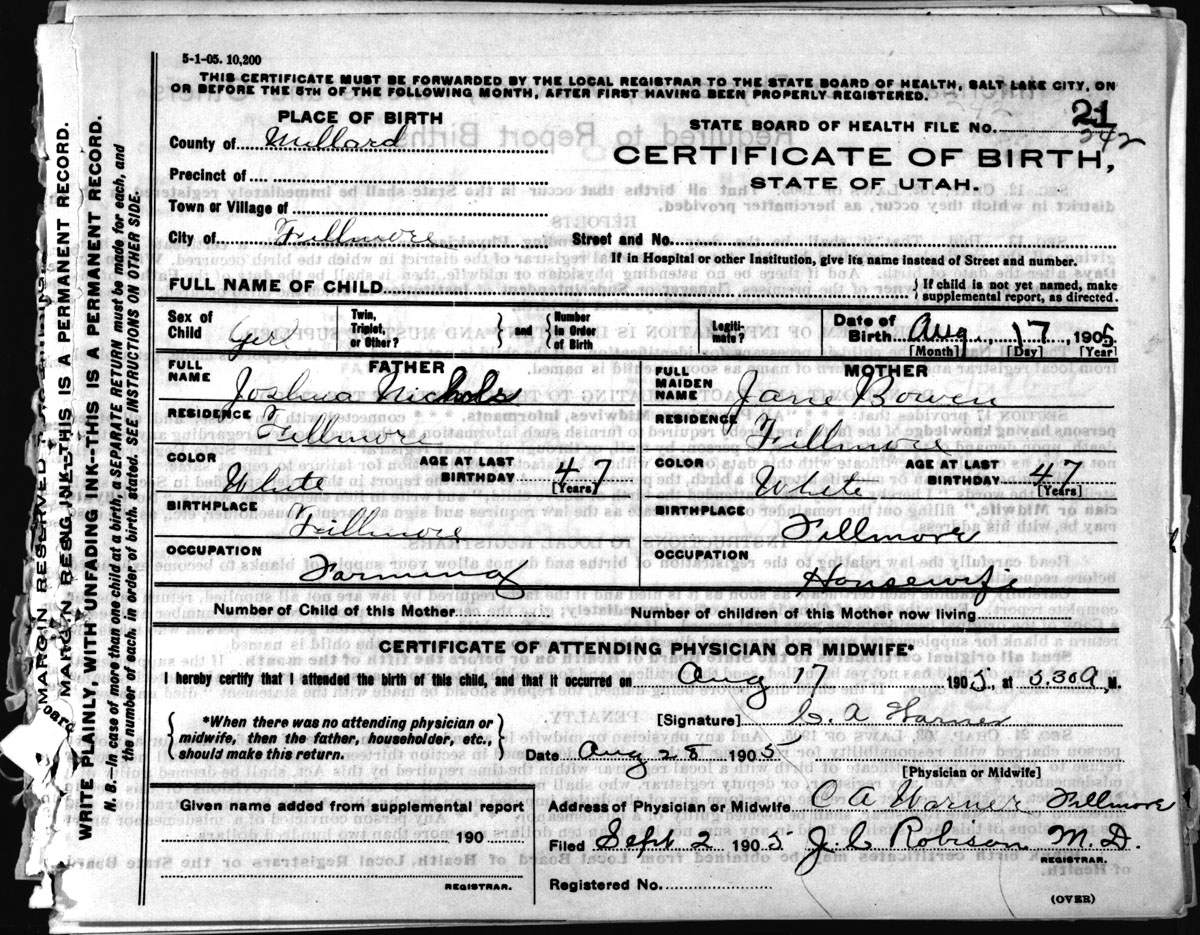 5-1-05. 10,200
THIS CERTIFICATE MUST BE FORWARDED BY THE LOCAL REGISTRAR TO THE STATE BOARD OF HEALTH, SALT LAKE CITY, ON
OR BEFORE THE 5TH OF THE FOLLOWING MONTH, AFTER FIRST HAVING BEEN PROPERLY REGISTERED.
PLACE OF BIRTH
STATE BOARD OF HEALTH FILE NO. 21
242
County of Millard
CERTIFICATE OF BIRTH,
STATE OF UTAH.
Precinct of
Town or Village of
City of Fillmore Street and No.
If in Hospital or other Institution, give its name instead of Street and number.
FULL NAME OF CHILD } If child is not yet named, make
supplemental report, as directed.
Sex of Child Girl Twin, Triplet, or Other? } and { Number in Order of Birth Legiti-mate? Date of Birth Aug 17, 1905
[Month] [Day] [Year]
FATHER
FULL NAME Joshua Nichols
RESIDENCE Fillmore
COLOR White AGE AT LAST BIRTHDAY 47
[Years]
BIRTHPLACE Fillmore
OCCUPATION Farming
MOTHER
FULL MAIDEN NAME Jane Bowen
RESIDENCE Fillmore
COLOR White AGE AT LAST BIRTHDAY 47
[Years]
BIRTHPLACE Fillmore
OCCUPATION Housewife
Number of Child of this Mother Number of children of this Mother now living
CERTIFICATE OF ATTENDING PHYSICIAN OR MIDWIFE*
I hereby certify that I attended the birth of this child, and that it occurred on Aug 17 1905, at 5.30 a, M.
{ *When there was no attending physician or
midwife, then the father, householder, etc.,
should make this return. }
[Signature] C. A Warner
Date Aug 28 1905
[Physician or Midwife]
Given name added from supplemental report
190
REGISTRAR.
Address of Physician or Midwife C A Warner Fillmore
Filed Sept 2 1905 J. C Robison M.D.
REGISTRAR.
Registered No.
(OVER)
MARGIN RESERVED
MARGIN RESERVED
INK--THIS IS A PERMANENT RECORD.
WRITE PLAINLY, WITH UNFADING INK--THIS IS A PERMANENT RECORD.
N. B.--In case of more than one child at a birth, a SEPARATE RETURN must be made for each, and
the number of each, in order of birth, stated. SEE INSTRUCTIONS ON OTHER SIDE.